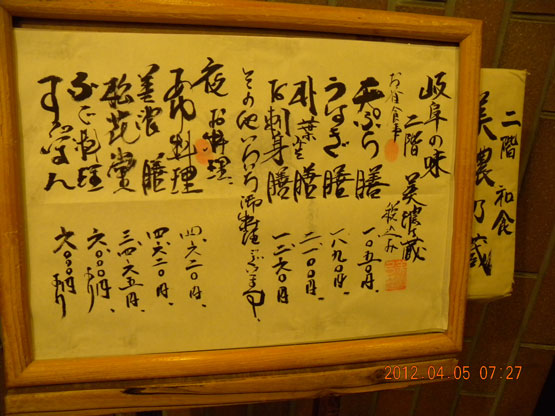 岐阜の味
二階 美濃乃蔵
お昼食事 税込み
天ぷら膳 一〇五〇円、
うなぎ膳 一八九〇円、
朴葉 膳 二一〇〇円、
お刺身膳 一二六〇円、
その他いろいろ御料理ございます、
夜 お料理、
料理 四六二〇円、
美濃膳 四六二〇円、
松花堂 三四六五円、
料理 六〇〇〇円より
すっぽん 六〇〇〇円より
二階 和食
美濃乃蔵
2012.04.05 07:27